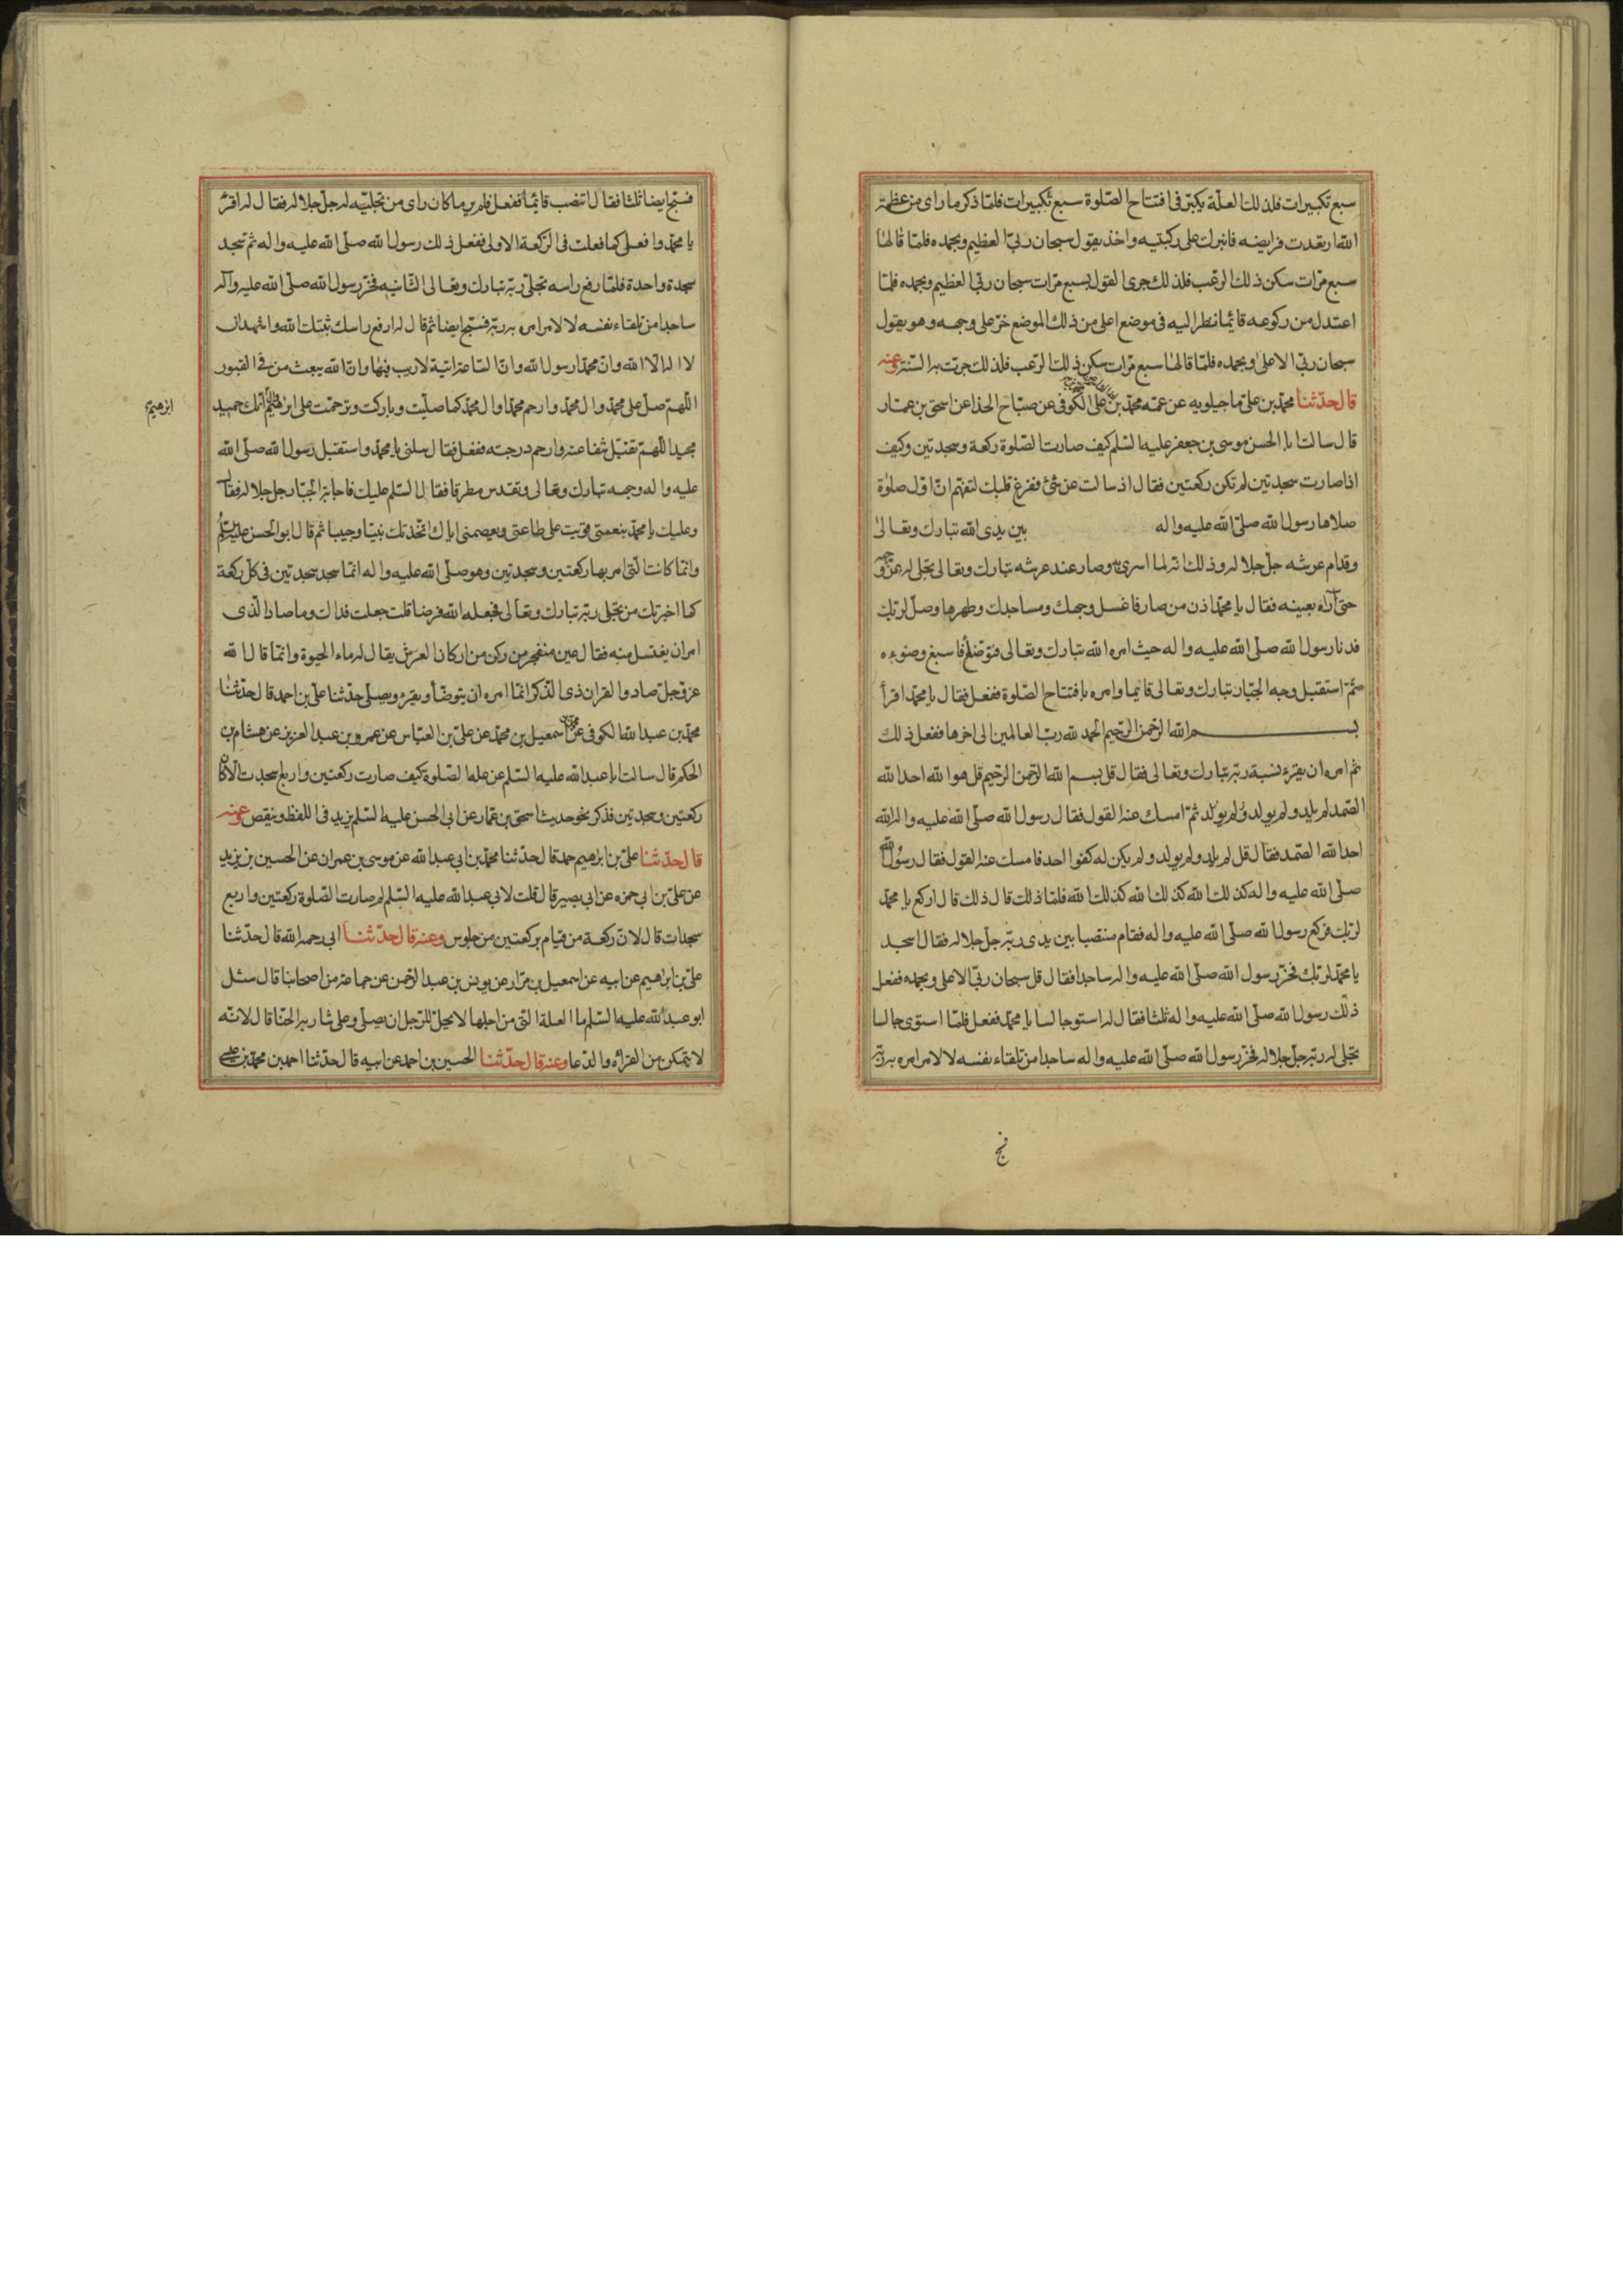 سبع تكبيرات فلذلك العلّة يكبّر فى افتتاح الصّلوة سبع تكبيرات فلمّا ذكر ما راى من عظمة
الله ارتعدت فرايضه فانبرك على ركبتيه واخذ يقول سبحان ربّى العظيم وبحمده فلمّا قالها
سبع مرّات سكن ذلك الرعب فلذلك جرى القول بسبع مرّات سبحان ربّى العظيم وبحمده فلمّا
اعتدل من ركوعه قائما نظر اليه فى موضع اعلى من ذلك الموضع خرّ على وجهه وهو يقول
سبحان ربّى الاعلى وبحمده فلمّا قالها سبع مرّات سكن ذلك الرّعب فلذلك جرت به السّنة وعنه
قال حدّثنا محمّد بن على ما جيلويه عن عمّه محمّد بن على الكوفى عن صبّاح الحذا عن اسحق بن عمّار
قال سالت ابا الحسن موسى بن جعفر عليه السّلم كيف صارت الصّلوة ركعة وسجدتين وكيف
اذا صارت سجدتين لم تكن ركعتين فقال اذ سالت عن شئ ففرغ قلبك لتفهم انّ اوّل صلوة
صلاها رسول الله صلّى الله عليه واله بين يدى الله تبارك وتعالى
وقدام عرشه جلّ جلاله وذلك انّه لما اسرى به وصار عند عرشه تبارك وتعالى تجلى له عن وجهه
حتى رآه بعينه فقال يا محمّد اذن من صار فاغسل وجهك ومساجدك وطهرها وصلّ لربّك
فدنا رسول الله صلّى الله عليه واله حيث امره الله تبارك وتعالى فتوضأ فاسبغ وضوءه
ثمّ استقبل وجه الجبّار تبارك وتعالى قائما وامره بافتتاح الصّلوة ففعل فقال يا محمّد اقرأ
بسم الله الرّحمن الرّحيم الحمد لله ربّ العالمين الى اخرها ففعل ذلك
ثم امره ان يقرء نسبة ربّه تبارك وتعالى فقال قل بسم الله الرّحمن الرّحيم قل هو الله احد الله
الصّمد لم يلد ولم يولد ولم يولد ثمّ امسك عنه القول فقال رسول الله صلّى الله عليه واله الله
احد الله الصّمد فقال قل لم يلد ولم يولد ولم يكن له كفوا احد فامسك عنه القول فقال رسول الله
صلّى الله عليه واله كذلك الله كذلك الله كذلك الله فلمّا ذلك قال ذلك قال اركع يا محمّد
لربّك فركع رسول الله صلّى الله عليه واله فقام منتصبا بين يدى ربّه جلّ جلاله فقال اسجد
يا محمّد لربّك فخرّ رسول الله صلّى الله عليه واله ساجدا فقال قل سبحان ربّى الاعلى وبحمده ففعل
ذلك رسول الله صلّى الله عليه واله ثلثا فقال له استو جالسا يا محمّد ففعل فلمّا استوى جالسا
تجلى له ربّه جلّ جلاله فخرّ رسول الله صلّى الله عليه واله ساجدا من تلقاء نفسه لا لامر امره به ربّه
فسبّح ايضا ثلثا فقال انتصب قائما ففعل فلم ير ما كان راى من تجليّه له جلّ جلاله فقال له اقرء
يا محمّد وافعل كما فعلت فى الرّكعة الاولى ففعل ذلك رسول الله صلّى الله عليه واله ثم سجد
سجدة واحدة فلمّا رفع راسه تجلّى ربّه تبارك وتعالى الثانيه فخرّ رسول الله صلّى الله عليه وآله
ساجدا من تلقاء نفسه لا لامر امره به ربّه فسبّح ايضا ثم قال له ارفع راسك ثبتك الله واشهد ان
لا اله الا الله وانّ محمّدا رسول الله وانّ السّاعة اتية لا ريب فيها وانّ الله يبعث من فى القبور
اللّهمّ صلّ على محمّد وال محمّد وارحم محمّدا وال محمّد كما صليّت وباركت وترحمّت على ابرهيم انّك حميد
ابرهيم
مجيد اللّهمّ تقبّل شفاعته وارحم درجته ففعل فقال سلنى يا محمّد واستقبل رسول الله صلّى الله
عليه واله وجهه تبارك وتعالى وتقدس مطرقا فقال السّلم عليك فاجابه الجبّار جلّ جلاله فقال
وعليك يا محمّد بنعمتى قويت على طاعتى وبعصمتى اياك اتّخذتك نبيّا وحبيبا ثم قال ابو الحسن عليه السّلم
وانّما كانت الّتى امر بها ركعتين وسجدتين وهو صلّى الله عليه واله انمّا سجد سجدتين فى كلّ ركعة
كما اخبرتك من تجلى ربّه تبارك وتعالى فجعله الله فرضا قلت جعلت فداك وما صاد الّذى
امر ان يغتسل منه فقال عين منفجر من ركن من اركان العرش يقال له ماء الحيوة وانمّا قال الله
عزّ وجلّ صاد والقران ذى الذّكر انمّا امره ان يتوضّأ ويقرء ويصلّى حدّثنا علىّ بن احمد قال حدّثنا
محمّد بن عبد الله الكوفى عن اسمعيل بن محمّد عن علىّ بن العبّاس عن عمرو بن عبد العزيز عن هشام بن
الحكم قال سالت ابا عبد الله عليه السّلم عن عله الصّلوة كيف صارت ركعتين واربع سجدت الا كان
ركعتين وسجدتين فذكر نحو حديث اسحق بن عمّار عن ابى الحسن عليه السّلم يزيد فى اللفظ وينقص وعنه
قال حدّثنا علىّ بن ابرهيم حمد قال حدّثنا محمّد بن ابى عبد الله عن موسى بن عمران عن الحسين بن يزيد
عن علىّ بن ابى حمزه عن ابى بصير قال قلت لابى عبد الله عليه السّلم لم صارت الصّلوة ركعتين واربع
سجدات قال لانّ ركعة من قيام بركعتين من جلوس وعنه قال حدّثنا ابى رحمه الله قال حدّثنا
علىّ بن ابرهيم عن ابيه عن اسمعيل بن مرّار عن يونس بن عبد الرّحمن عن جماعة من اصحابنا قال سئل
ابو عبد الله عليه السّلم ما العلة الّتى من اجلها لا يحلّ للرّجل ان يصلّى وعلى شاربه الحنّا قال لانّه
لا يتمكن من القرأه والدّعا وعنه قال حدّثنا الحسين بن احمد عن ابيه قال حدّثنا احمد بن محمّد بن على